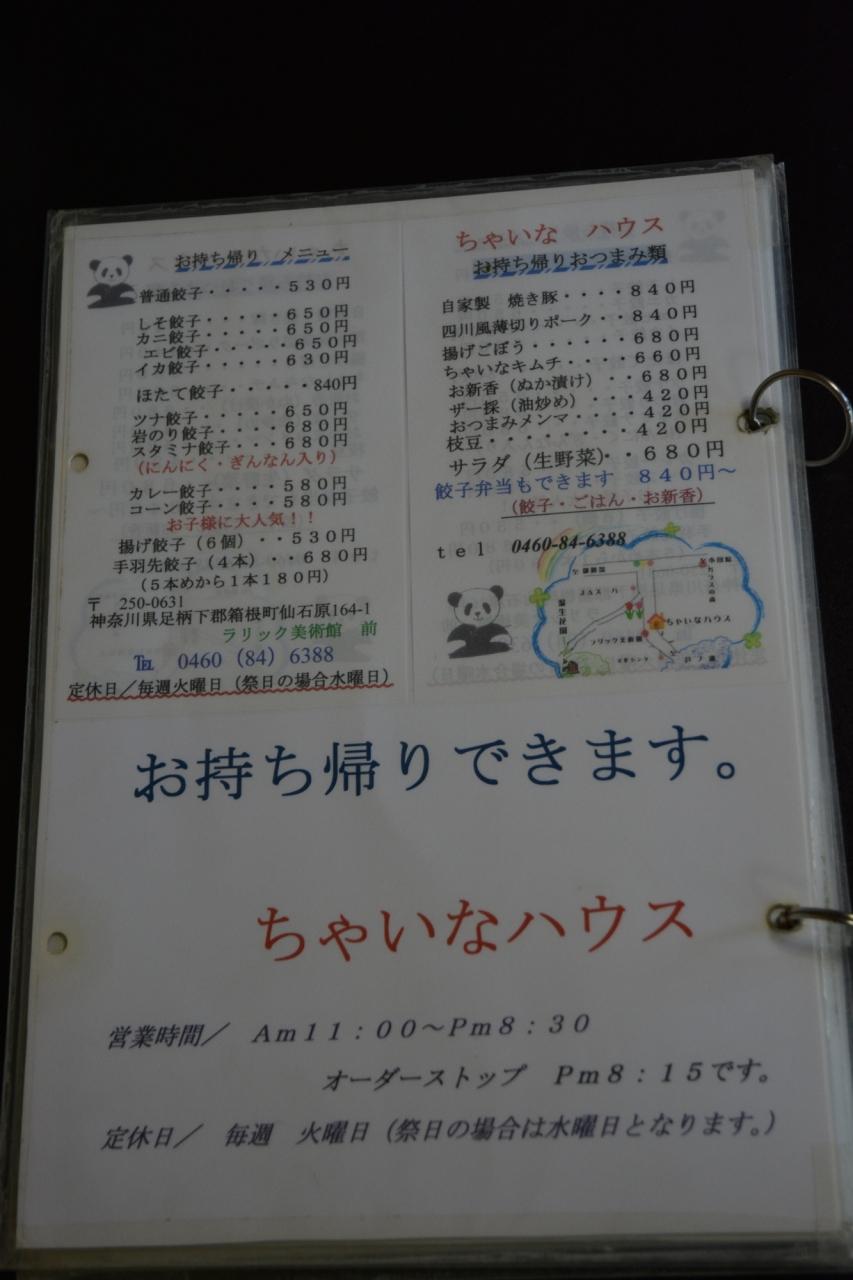 お持ち帰り　メニュー
普通餃子・・・・・５３０円
しそ餃子・・・・・６５０円
カニ餃子・・・・・６５０円
エビ餃子・・・・・６５０円
イカ餃子・・・・・６３０円
ほたて餃子・・・・・840円
ツナ餃子・・・・・６５０円
岩のり餃子・・・・６８０円
スタミナ餃子・・・６８０円
（にんにく・ぎんなん入り）
カレー餃子・・・・５８０円
コーン餃子・・・・５８０円
お子様に大人気！！
揚げ餃子（６個）・・５３０円
手羽先餃子（４本）・・６８０円
（５本めから１本１８０円）
〒　250-0631
神奈川県足柄下郡箱根町仙石原164-1
ラリック美術館　前
℡　0460（84）6388
定休日／毎週火曜日（祭日の場合水曜日）
ちゃいな　ハウス
お持ち帰りおつまみ類
自家製　焼き豚・・・・８４０円
四川風薄切りポーク・・８４０円
揚げごぼう・・・・・・６８０円
ちゃいなキムチ・・・・６６０円
お新香（ぬか漬け）・・６８０円
ザー採（油炒め）・・・４２０円
おつまみメンマ・・・・４２０円
枝豆・・・・・・・・４２０円
サラダ（生野菜）・・６８０円
餃子弁当もできます　８４０円～
（餃子・ごはん・お新香）
ｔｅｌ　0460-84-6388
ガラスの森
ちゃいなハウス
ラリック美術館
お持ち帰りできます。
ちゃいなハウス
営業時間／　Ａｍ１１：００～Ｐｍ８：３０
オーダーストップ　Ｐｍ８：１５です。
定休日／　毎週　火曜日（祭日の場合は水曜日となります。）